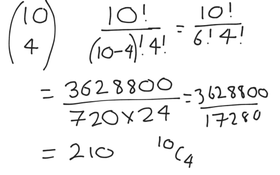 (10 4) 10!/(10-4)!4! = 10!/6!4!
= 3628800/720×24 = 3628800/17280
= 210 ¹⁰C₄